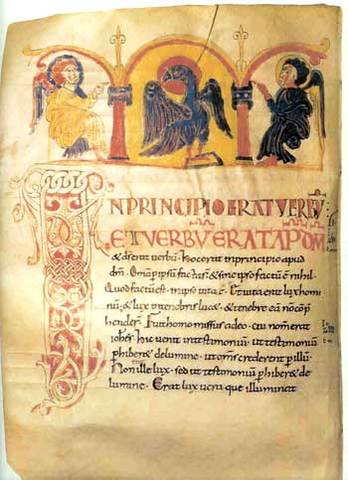 INPRINCIPIO ERAT VERBŪ
ET VERBV ERAT AP DM
& ds erat verbū· hoc erat inprincipio apud
dm̄· Omīa p ipsū facta st̄· & sine ipso factū ē nihil·
Quod factū est· inipso uita ē· Et uita erat lux homi
nū· & lux intenebris lucet· & tenebre eā nōcōp
hender̄· Fuit homo missus adeo· cui nom̄ erat
iohes· hic venit intestimoniū· ut testimoniū
phiberet delumine· ut om̄s crederent p illū·
Non ille lux· sed ut testimoniū phiberet de
lumine· Erat lux uera que illuminat